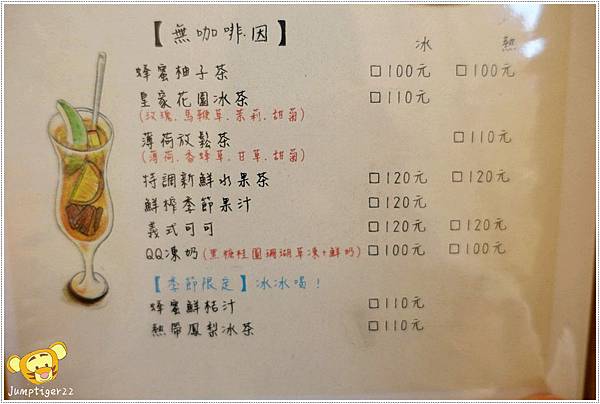 【無咖啡因】 冰 熱
蜂蜜柚子茶 □100元 □100元
皇家花園冰茶 □110元
(玫瑰.馬鞭草.茉莉.甜菊)
薄荷放鬆茶 □110元
(薄荷.香蜂草.甘草.甜菊)
特調新鮮水果茶 □120元 □120元
鮮榨季節果汁 □120元
義式可可 □120元 □120元
QQ凍奶(黑糖桂圓珊瑚草凍+鮮奶) □100元 □100元
【季節限定】冰冰喝!
蜂蜜鮮桔汁 □110元
熱帶鳳梨冰茶 □110元
Jumptiger22